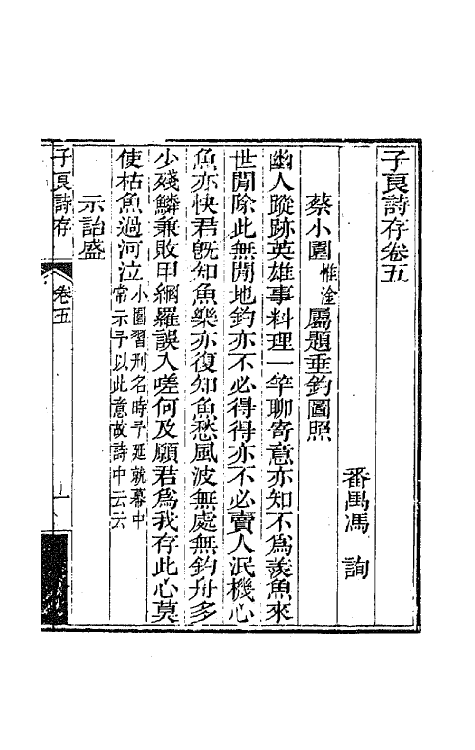 子良詩存卷五
番禺馮　詢
蔡小園惟淦屬題垂釣圖照
幽人蹤跡英雄事料理一竿聊寄意亦知不爲羨魚來
世閒除此無閒地釣亦不必得得亦不必賣人泯機心
魚亦快君旣知魚樂亦復知魚愁風波無處無釣舟多
少殘鱗兼敗甲網羅誤入嗟何及願君爲我存此心莫
使枯魚過河泣小園習刑名時予延就幕中
常示予以此意故詩中云云
示詒盛
子良詩存
卷五
一